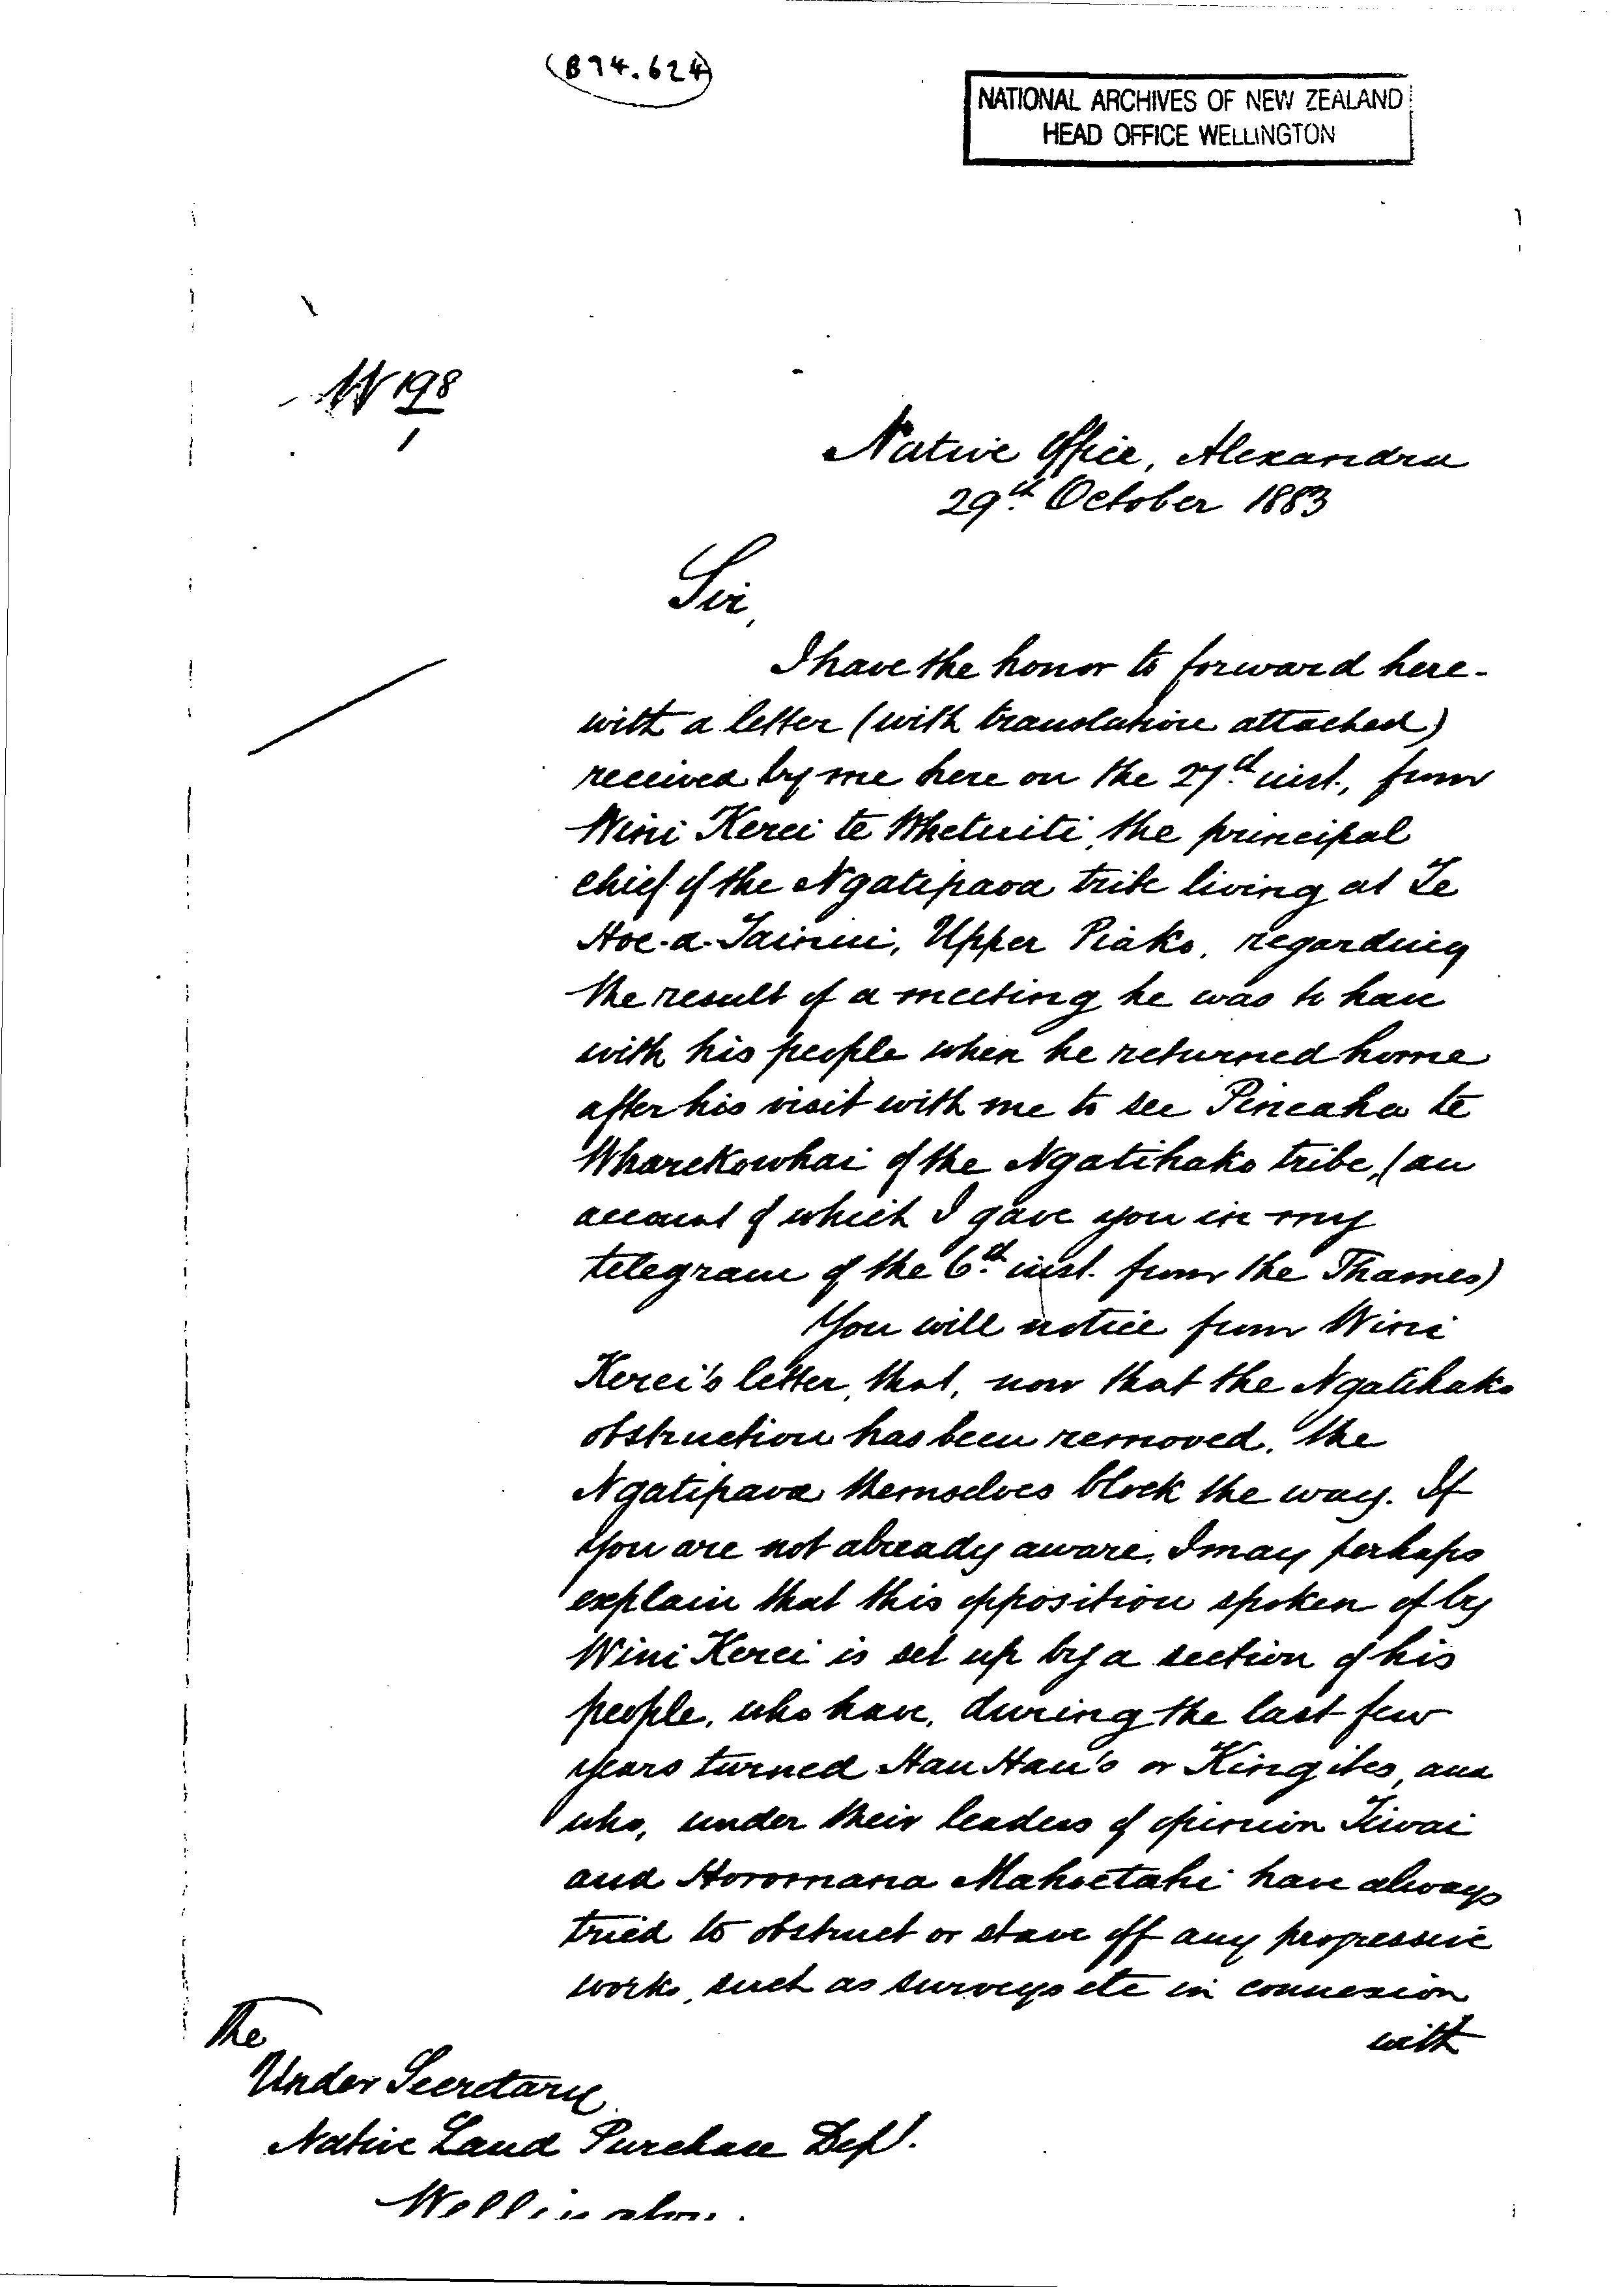 (B94.624)
NATIONAL ARCHIVES OF NEW ZEALAND
HEAD OFFICE WELLINGTON
W 198
1
Native Office, Alexandra
29th October 1883
Sir,
I have the honor to forward here-
with a letter (with translation attached)
received by me here on the 27th inst., from
Wini Kerei te Whetuiti, the principal
chief of the Ngatipaoa tribe living at Te
Hoe-a-Tainui, Upper Piako, regarding
the result of a meeting he was to have
with his people when he returned home
after his visit with me to see Pineaha te
Wharekowhai of the Ngatihako tribe, (an
account of which I gave you in my
telegram of the 6th inst. from the Thames)
You will notice from Wini
Kerei's letter, that, now that the Ngatihako
obstruction has been removed, the
Ngatipaoa themselves block the way. If
you are not already aware, I may perhaps
explain that this opposition spoken of by
Wini Kerei is set up by a section of his
people, who have, during the last few
years turned Hau Hau's or Kingites, and
who, under their leaders of opinion Tiwai
and Horomana Mahoetahi have always
tried to obstruct or stave off any progressive
works, such as surveys etc in connexion
with
The
Under Secretary
Native Land Purchase Dept.
Wellington.